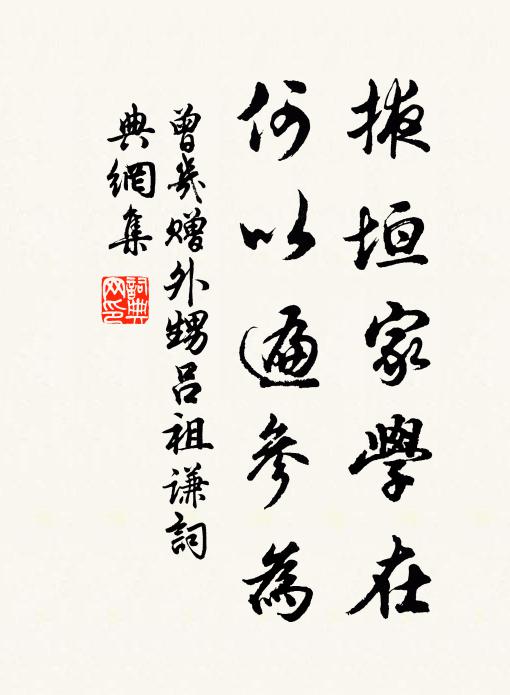 掖垣家學在
何以遍參為
曾幾贈外甥呂祖謙詞
典網集
詞典
网印